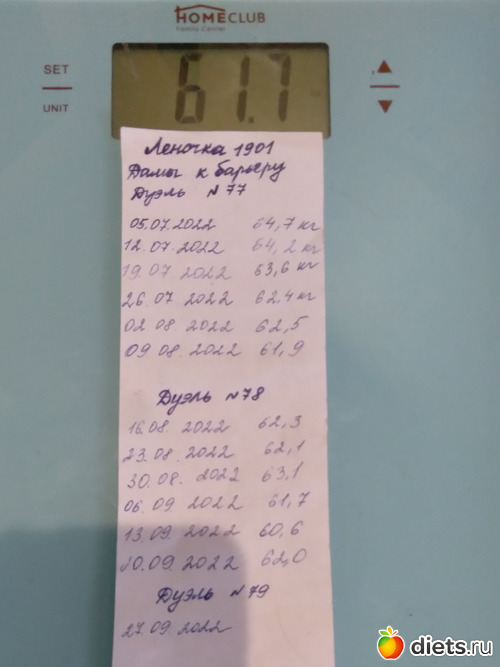 HOMECLUB
Family Center
SET
UNIT
61.7
Леночка 1901
Дамы к барьеру
Дуэль N 77
05.07.2022 64,7 кг
12.07.2022 64,2 кг
19.07.2022 63,6 кг
26.07 2022 62.4 кг
02 08 2022 62,5
09 08. 2022 61,9
Дуэль N 78
16.08. 2022 62,3
23.08. 2022 62,1
30.08. 2022 63,1
06.09. 2022 61,7
13.09. 2022 60,6
20.09. 2022 62,0
Дуэль N 79
27.09. 2022
diets.ru